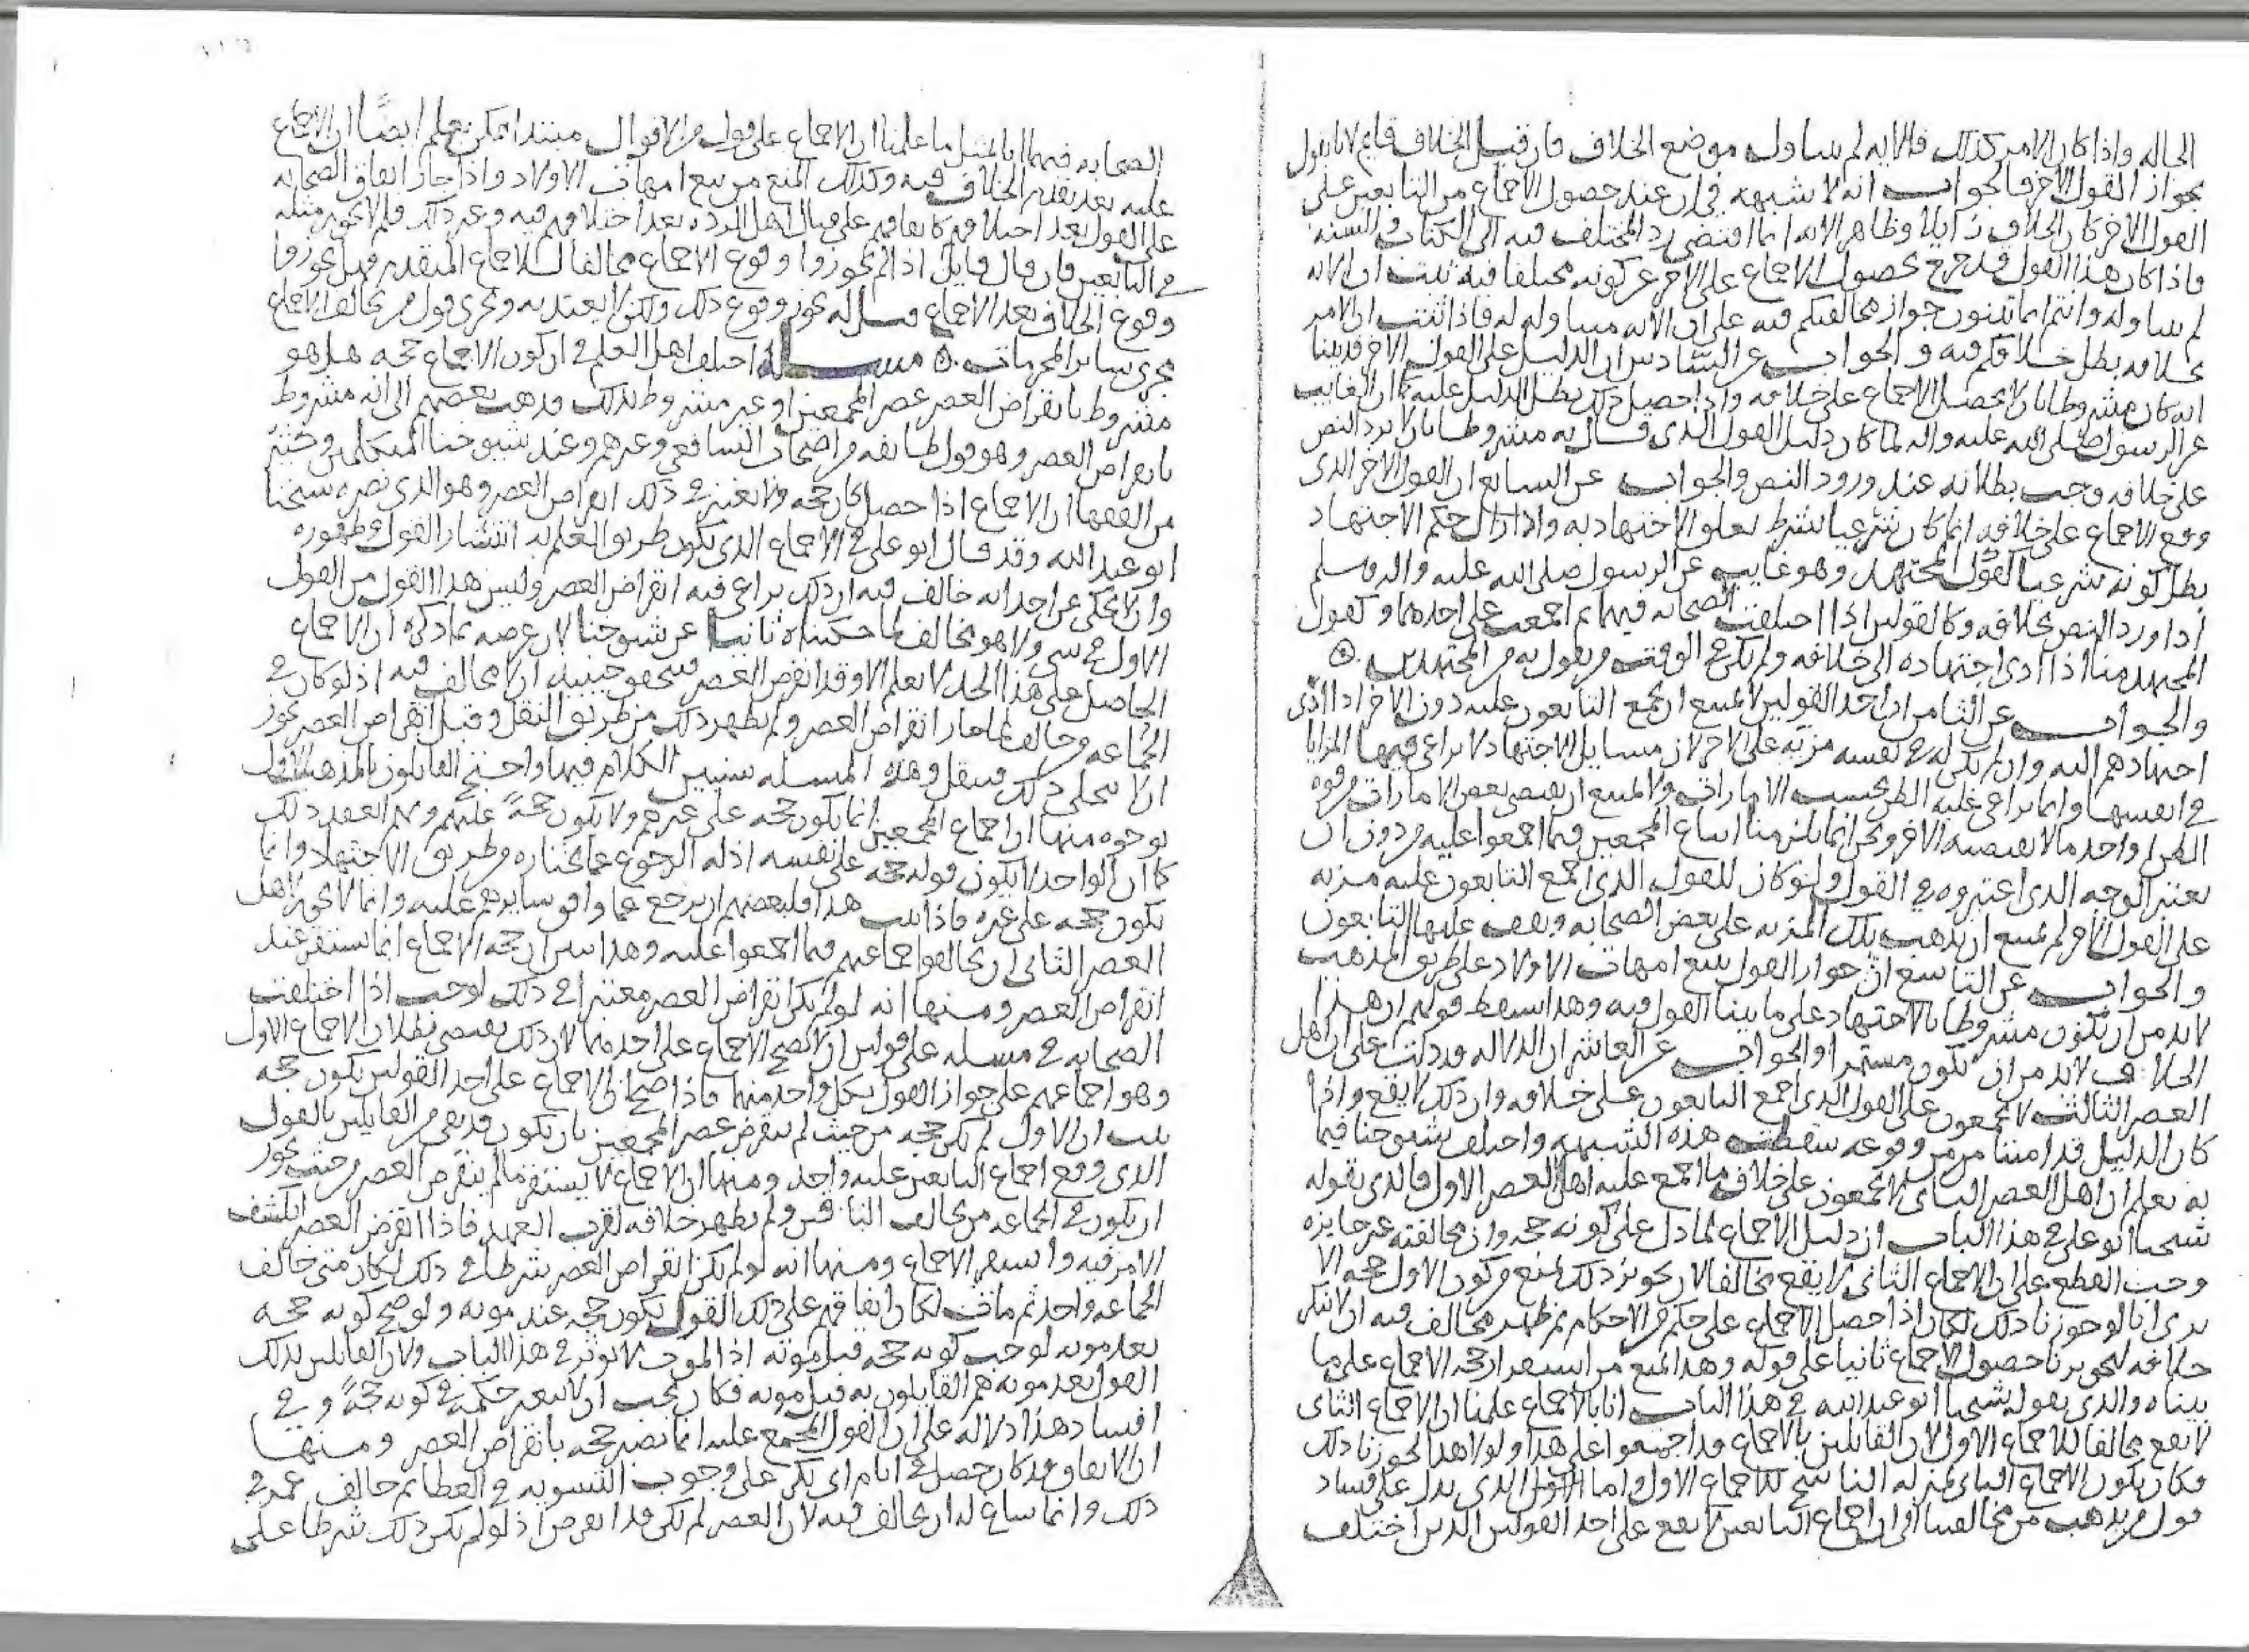 الحاله واذا كان الامر كذلك فالايه لم تتناول موضع الخلاف فان قيل الخلاف قايم لانا نقول
بجواز القول الاخر فالجواب انه لا شبهه في ان عند حصول الاجماع من التابعين على
القول الاخر كان الخلاف زايلا وظاهر الايه انما اقتضى رد المختلف فيه الى الكتاب والسنه
فاذا كان هذا القول قد خرج بحصول الاجماع على الاخر عن كونه مختلفا فيه ثبت ان الايه
لم تتناوله وانتم انما تبنون جواز مخالفتكم فيه على ان الايه متناوله له فاذا ثبت ان الامر
بخلافه بطل خلافكم فيه والجواب عن السادس ان الدليل على القول الاخر قد بينا
انه كان مشروطا بان لا يحصل الاجماع على خلافه واذا حصل ذلك بطل الدليل عليه كما ان الغايب
عن الرسول صلى الله عليه واله لما كان دليل القول الذي قال به مشروطا بان لا يرد النص
على خلافه وجب بطلانه عند ورود النص والجواب عن السابع ان القول الاخر الذي
وقع الاجماع على خلافه انما كان شرعيا بشرط تعلق الاجتهاد به واذا زال حكم الاجتهاد
بطل كونه شرعيا كقول المجتهد وهو غايب عن الرسول صلى الله عليه واله وسلم
اذا ورد النص بخلافه وكالقولين اذا اختلفت الصحابه فيهما ثم اجمعت على احدهما وكقول
المجتهد منا اذا ادى اجتهاده الى خلافه ولم يكن في الوقت من يقول به من المجتهدين
والجواب عن الثامن ان احد القولين لا يمتنع ان يجمع التابعون عليه دون الاخر اذا ادى
اجتهادهم اليه وان لم يكن له في نفسه مزيه على الاخر لان مسايل الاجتهاد لا يراعى فيها المزايا
في انفسها وانما يراعى غلبه الظن بحسب الامارات ولا يمتنع ان يقتضي بعض الامارات من قوه
الظن لواحد ما لا يقتضيه الاخر ونحن انما يلزمنا اتباع المجمعين فيما اجمعوا عليه من دون ان
يعتبر الوجه الذي اعتبروه في القول ولو كان للقول الذي اجمع التابعون عليه مزيه
على القول الاخر لم يمتنع ان يذهب تلك المزيه على بعض الصحابه ويقف عليها التابعون
والجواب عن التاسع ان جواز القول ببيع امهات الاولاد على طريق المذهب
لا بد من ان يكون مشروطا بالاجتهاد على ما بينا القول فيه وهذا يسقط قولهم ان هذا
الخلاف لا بد من ان يكون مستمرا والجواب عن العاشر ان الدلاله قد دلت على ان اهل
العصر الثالث لا يجمعون على القول الذي اجمع التابعون على خلافه وان ذلك لا يقع واذا
كان الدليل قد امننا من وقوعه سقطت هذه الشبهه واختلف شيوخنا فيما
به يعلم ان اهل العصر الثاني لا يجمعون على خلاف ما اجمع عليه اهل العصر الاول فالذي يقوله
شيخنا ابو علي في هذا الباب ان دليل الاجماع لما دل على كونه حجه وان مخالفته غير جايزه
وجب القطع على ان الاجماع الثاني لا يقع مخالفا لان تجويز ذلك يمنع من كون الاول حجه الا
ترى انا لو جوزنا ذلك لكان اذا حصل الاجماع على حكم من الاحكام ثم ظهر مخالف فيه ان لا ننكر
خلافه لتجويزنا حصول الاجماع ثانيا على قوله وهذا يمنع من استقرار حجه الاجماع على ما
بيناه والذي يقوله شيخنا ابو عبد الله في هذا الباب انا بالاجماع علمنا ان الاجماع الثاني
لا يقع مخالفا للاجماع الاول لان القايلين بالاجماع قد اجمعوا على هذا ولولا هذا لجوزنا ذلك
فكان يكون الاجماع الثاني بمنزله الناسخ للاجماع الاول واما القول الذي يدل على فساد
قول من يذهب من مخالفينا الى ان اجماع التابعين لا يقع على احد القولين الذين اختلف
الصحابه فيهما انا بمثل ما علمنا ان الاجماع على قول من الاقوال مبتدا ممكن نعلم ايضا ان الاجماع
عليه بعد تقدم الخلاف فيه وكذلك المنع من بيع امهات الاولاد واذا جاز اتفاق الصحابه
على القول بعد اختلافهم كاتفاقهم على قتال اهل الرده بعد اختلافهم فيه وغير ذلك فلم لا يجوز مثله
في التابعين فان قال قايل اذا لم تجوزوا وقوع الاجماع مخالفا للاجماع المتقدم فهل تجوزوا
وقوع الخلاف بعد الاجماع قيل له يجوز وقوع ذلك ولكن لا يعتد به ويجري قول من يخالف الاجماع
مجرى ساير المحرمات مسله اختلف اهل العلم في ان كون الاجماع حجه هل هو
مشروط بانقراض العصر عصر المجمعين او غير مشروط بذلك فذهب بعضهم الى انه مشروط
بانقراض العصر وهو قول طايفه من اصحاب الشافعي وغيرهم وعند شيوخنا المتكلمين وكثير
من الفقها ان الاجماع اذا حصل كان حجه ولا يعتبر في ذلك انقراض العصر وهو الذي نصره شيخنا
ابو عبد الله وقد قال ابو علي في الاجماع الذي يكون طريق العلم به انتشار القول وظهوره
وان لا يحكى عن احد انه خالف فيه ان ذلك يراعى فيه انقراض العصر وليس هذا القول من القول
الاول في شي ولا هو مخالف لما حكيناه ثانيا عن شيوخنا لان غرضه بما ذكره ان الاجماع
الحاصل على هذا الحد لا يعلم الا وقد انقرض العصر فيتحقق حينئذ ان لا مخالف فيه اذ لو كان في
الجماعه من خالف لما جاز انقراض العصر ولم يظهر ذلك من طريق النقل وقبل انقراض العصر يجوز
ان لا يتجلى ذلك فينقل وهذه المسله سنبين الكلام فيها واحتج القايلون بالمذهب الاول
بوجوه منها ان اجماع المجمعين انما يكون حجه على غيرهم ولا يكون حجةً عليهم وبهم انعقد ذلك
كما ان الواحد لا يكون قوله حجه على نفسه اذ له الرجوع عما يختاره من طريق الاجتهاد وانما
يكون حجه على غيره فاذا ثبت هذا فلبعضهم ان يرجع عما وافق سايرهم عليه وانما لا يجوز لاهل
العصر الثاني ان يخالفوا اجماعهم فيما اجمعوا عليه وهذا يبين ان حجه الاجماع انما تستقر عند
انقراض العصر ومنها انه لو لم يكن انقراض العصر معتبرا في ذلك لوجب اذا اختلفت
الصحابه في مسله على قولين ان لا يصح الاجماع على احدهما لان ذلك يقتضي بطلان الاجماع الاول
وهو اجماعهم على جواز القول بكل واحد منهما فاذا صح ان الاجماع على احد القولين يكون حجه
ثبت ان الاول لم يكن حجه من حيث لم ينقرض عصر المجمعين بان يكون قد بقي من القايلين بالقول
الذي وقع اجماع التابعين عليه واحد ومنها ان الاجماع لا يستقر ما لم ينقرض العصر من حيث يجوز
ان يكون في الجماعه من يخالف الباقين ولم يظهر خلافه لقرب العهد فاذا انقرض العصر انكشف
الامر فيه واستقر الاجماع ومنها انه لو لم يكن انقراض العصر شرطا في ذلك لكان متى خالف
الجماعه واحد ثم مات لكان اتفاقهم على ذلك القول يكون حجه عند موته ولو صح كونه حجه
بعد موته لوجب كونه حجه قبل موته اذ الموت لا يوثر في هذا الباب ولان القايلين بذلك
القول بعد موته هم القايلون به قبل موته فكان يجب ان لا يتغير حكمه في كونه حجةً وفي
افساد هذا دلاله على ان القول المجمع عليه انما تصير حجه بانقراض العصر ومنها
ان الاتفاق قد كان حصل في ايام ابي بكر على وجوب التسويه في العطا ثم خالف عمر في
ذلك وانما ساغ له ان يخالف فيه لان العصر لم يكن قد انقرض اذ لو لم يكن ذلك شرطا على